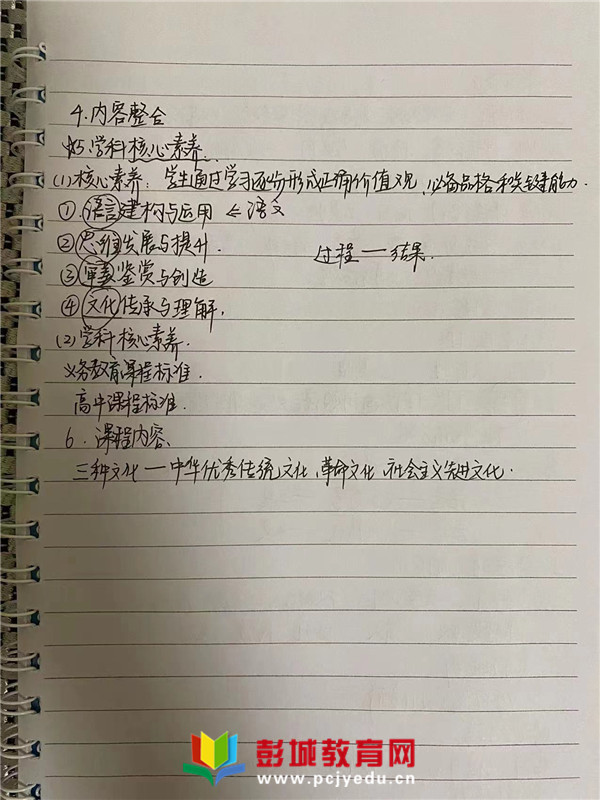 4.内容整合
5学科核心素养.
(1)核心素养：学生通过学习逐步形成正确价值观,必备品格和关键能力.
①语言建构与运用 ⇐语文
②思维发展与提升.
过程一结果.
③审美鉴赏与创造
④文化传承与理解.
(2)学科核心素养.
义务教育课程标准.
高中课程标准.
6.课程内容、
三种文化一中华优秀传统文化、革命文化、社会主义先进文化.
彭城教育网
www.pcjyedu.cn